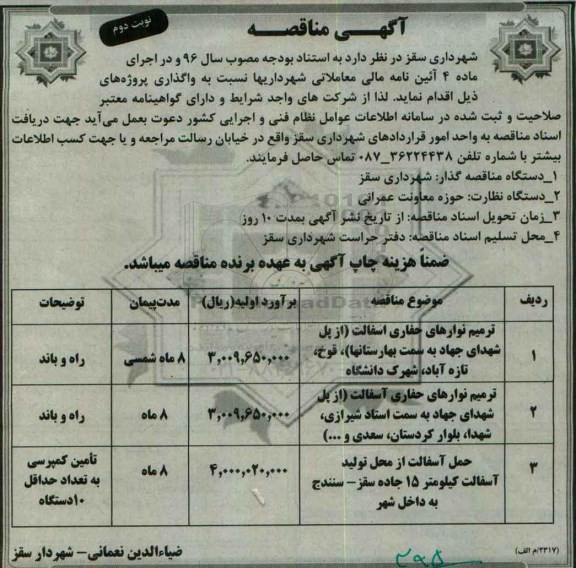 آگهـــی مناقصـــه
نوبت دوم
شهرداری سقز در نظر دارد به استناد بودجه مصوب سال ۹۶ و در اجرای
ماده ۴ آئین نامه مالی معاملاتی شهرداریها نسبت به واگذاری پروژه‌های
ذیل اقدام نماید. لذا از شرکت های واجد شرایط و دارای گواهینامه معتبر
صلاحیت و ثبت شده در سامانه اطلاعات عوامل نظام فنی و اجرایی کشور دعوت بعمل می‌آید جهت دریافت
اسناد مناقصه به واحد امور قراردادهای شهرداری سقز واقع در خیابان رسالت مراجعه و یا جهت کسب اطلاعات
بیشتر با شماره تلفن ۳۶۲۲۴۴۳۸_۰۸۷ تماس حاصل فرمایند.
۱_دستگاه مناقصه گذار: شهرداری سقز
۲_دستگاه نظارت: حوزه معاونت عمرانی
۳_زمان تحویل اسناد مناقصه: از تاریخ نشر آگهی بمدت ۱۰ روز
۴_محل تسلیم اسناد مناقصه: دفتر حراست شهرداری سقز
ضمناً هزینه چاپ آگهی به عهده برنده مناقصه میباشد.
ردیف موضوع مناقصه برآورد اولیه(ریال) مدت‌پیمان توضیحات
ترمیم نوارهای حفاری اسفالت (از پل
۱ شهدای جهاد به سمت بهارستانها)، قوخ، ۳,۰۰۹,۶۵۰,۰۰۰ ۸ ماه شمسی راه و باند
تازه آباد، شهرک دانشگاه
ترمیم نوارهای حفاری آسفالت (از پل
۲ شهدای جهاد به سمت استاد شیرازی، ۳,۰۰۹,۶۵۰,۰۰۰ ۸ ماه راه و باند
شهدا، بلوار کردستان، سعدی و ...)
حمل آسفالت از محل تولید تأمین کمپرسی
۳ آسفالت کیلومتر ۱۵ جاده سقز– سنندج ۴,۰۰۰,۰۲۰,۰۰۰ ۸ ماه به تعداد حداقل
به داخل شهر ۱۰دستگاه
(۲۳۱۷/م الف)
ضیاءالدین نعمانی– شهردار سقز
۲۹۵